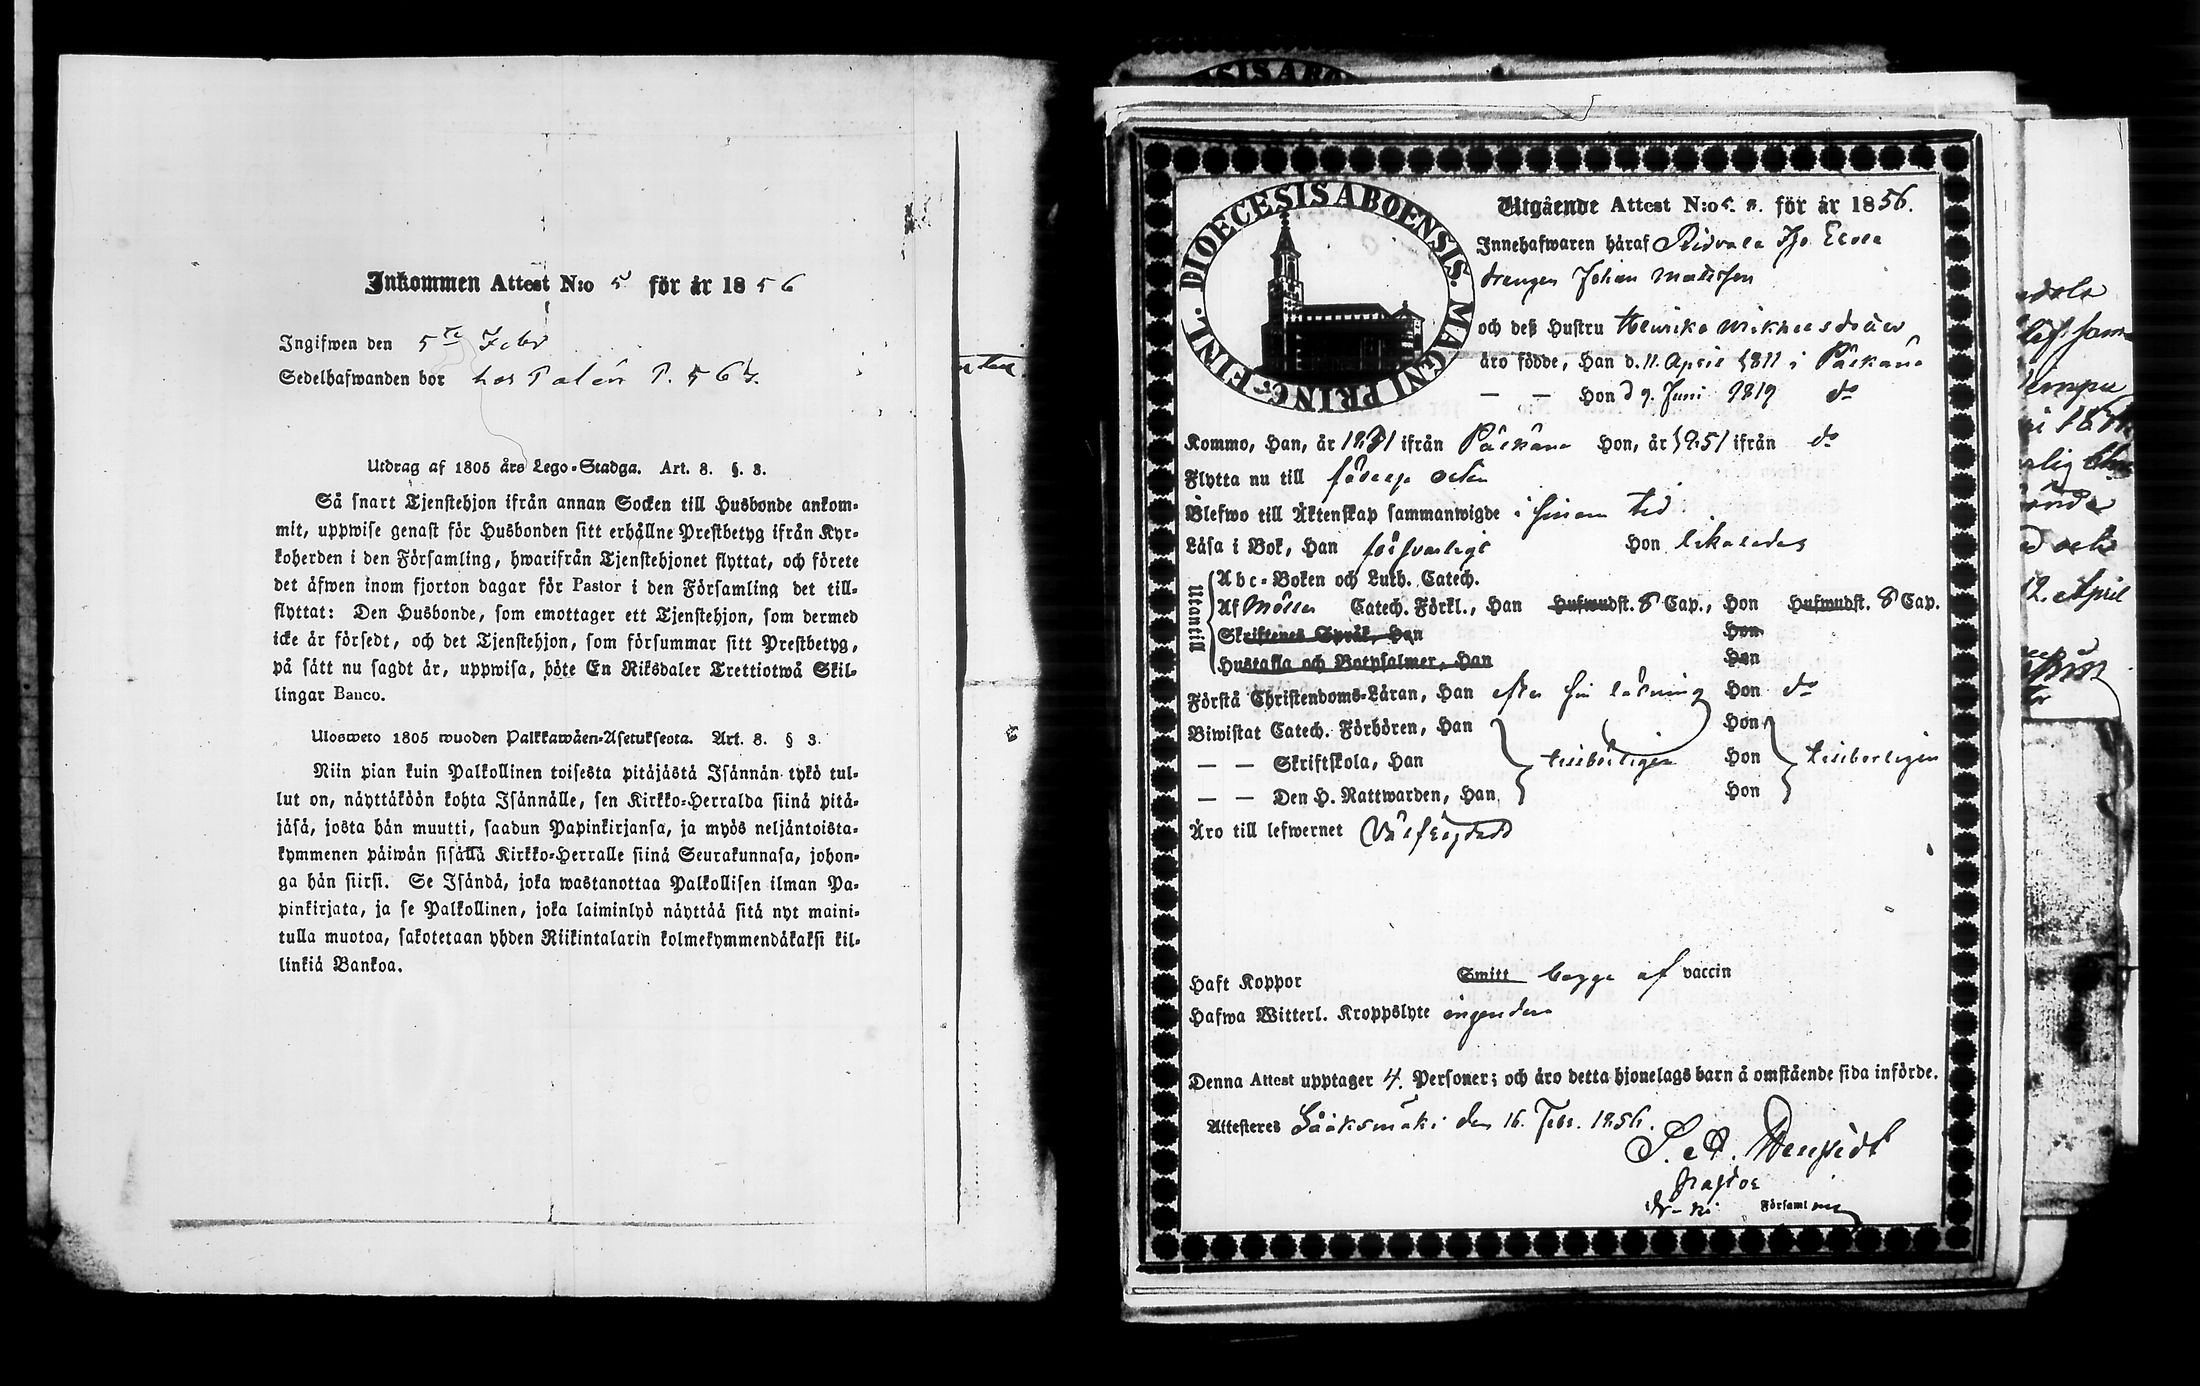 Inkommen Attest N:o 5 för år 1856
Ingifwen den 5te Febr
Sedelhafwanden bor hos Palén P. 567.
Utdrag af 1805 års Lego-Stadga. Art. 8. §. 3.
Så snart Tjenstehjon ifrån annan Socken till Husbonde ankom-
mit, uppwise genast för Husbonden sitt erhållne Prestbetyg ifrån Kyr-
koherden i den Församling, hwarifrån Tjenstehjonet flyttat, och förete
det äfwen inom fjorton dagar för Pastor i den Församling det till-
flyttat: Den Husbonde, som emottager ett Tjenstehjon, som dermed
icke är försedt, och det Tjenstehjon, som försummar sitt Prestbetyg,
på sätt nu sagdt är, uppwisa, böte En Riksdaler Trettiotwå Skil-
lingar Banco.
Ulosweto 1805 wuoden Palkkawäen-Asetuksesta. Art. 8. § 3.
Niin pian kuin Palkollinen toisesta pitäjästä Isännän tykö tul-
lut on, näyttäköön kohta Isännälle, sen Kirkko-Herralda siinä pitä-
jäsä, josta hän muutti, saadun Papinkirjansa, ja myös neljäntoista-
kymmenen päiwän sisällä Kirkko-Herralle siinä Seurakunnasa, johon-
ga hän siirsi. Se Isändä, joka wastanottaa Palkollisen ilman Pa-
pinkirjata, ja se Palkollinen, joka laiminlyö näyttää sitä nyt maini-
tulla muotoa, sakotetaan yhden Riikintalarin kolmekymmendäkaksi kil-
linkiä Bankoa.
DIOECESIS ABOENSIS. MAGNI PRINC. FINL.
Utgående Attest N:o för år 1856.
Innehafwaren häraf Ridvala
drengen Johan Mattsson
och deß Hustru Henrika
äro födde, Han d. 11. April 1811 i Pälkäne
— — Hon d 9. Juni 1819 do
Kommo, Han, år ifrån Pälkäne Hon, år 1851 ifrån do
Flytta nu till förega orten
Blefwo till Äktenskap sammanwigde i sinom tid
Läsa i Bok, Han försvarligt Hon likaledes
Utantill
Abc-Boken och Luth. Catech.
Af Möller Catech. Förkl., Han Hufwudst. 8 Cap., Hon Hufwudst. 8 Cap.
Skriftenes Språk, Han Hon
Hustafla och Botpsalmer, Han Hon
Förstå Christendoms-Läran, Han efter sin läsning Hon do
Biwistat Catech. Förhören, Han Hon
— — Skriftskola, Han tillbörligen Hon tillbörligen
— — Den H. Nattwarden, Han Hon
Äro till lefwernet Välfrejdade
Haft Koppor Smitt begge af vaccin
Hafwa Witterl. Kroppslyte ingendera
Denna Attest upptager 4. Personer; och äro detta hjonelags barn å omstående sida införde.
Attesteras Sääksmäki den 16. Febr. 1856.
Pastor
Församl
12. April